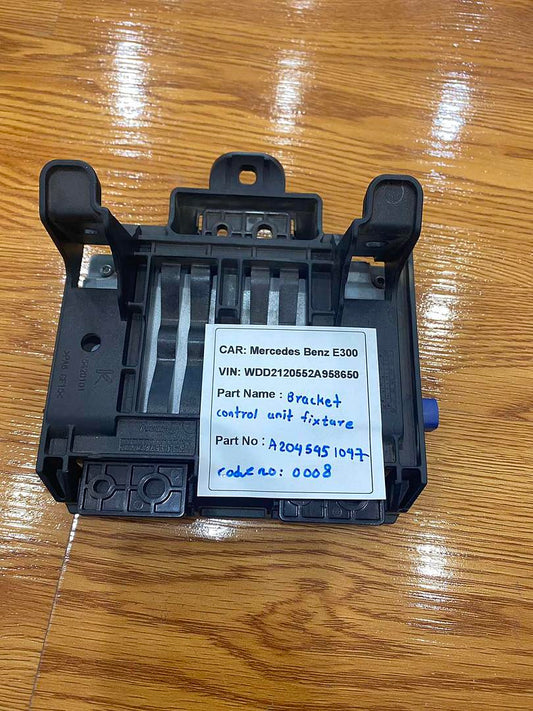 CAR: Mercedes Benz E300
VIN: WDD2120552A958650
Part Name : Bracket
control unit fixture
Part No : A2045451047
code no: 0008